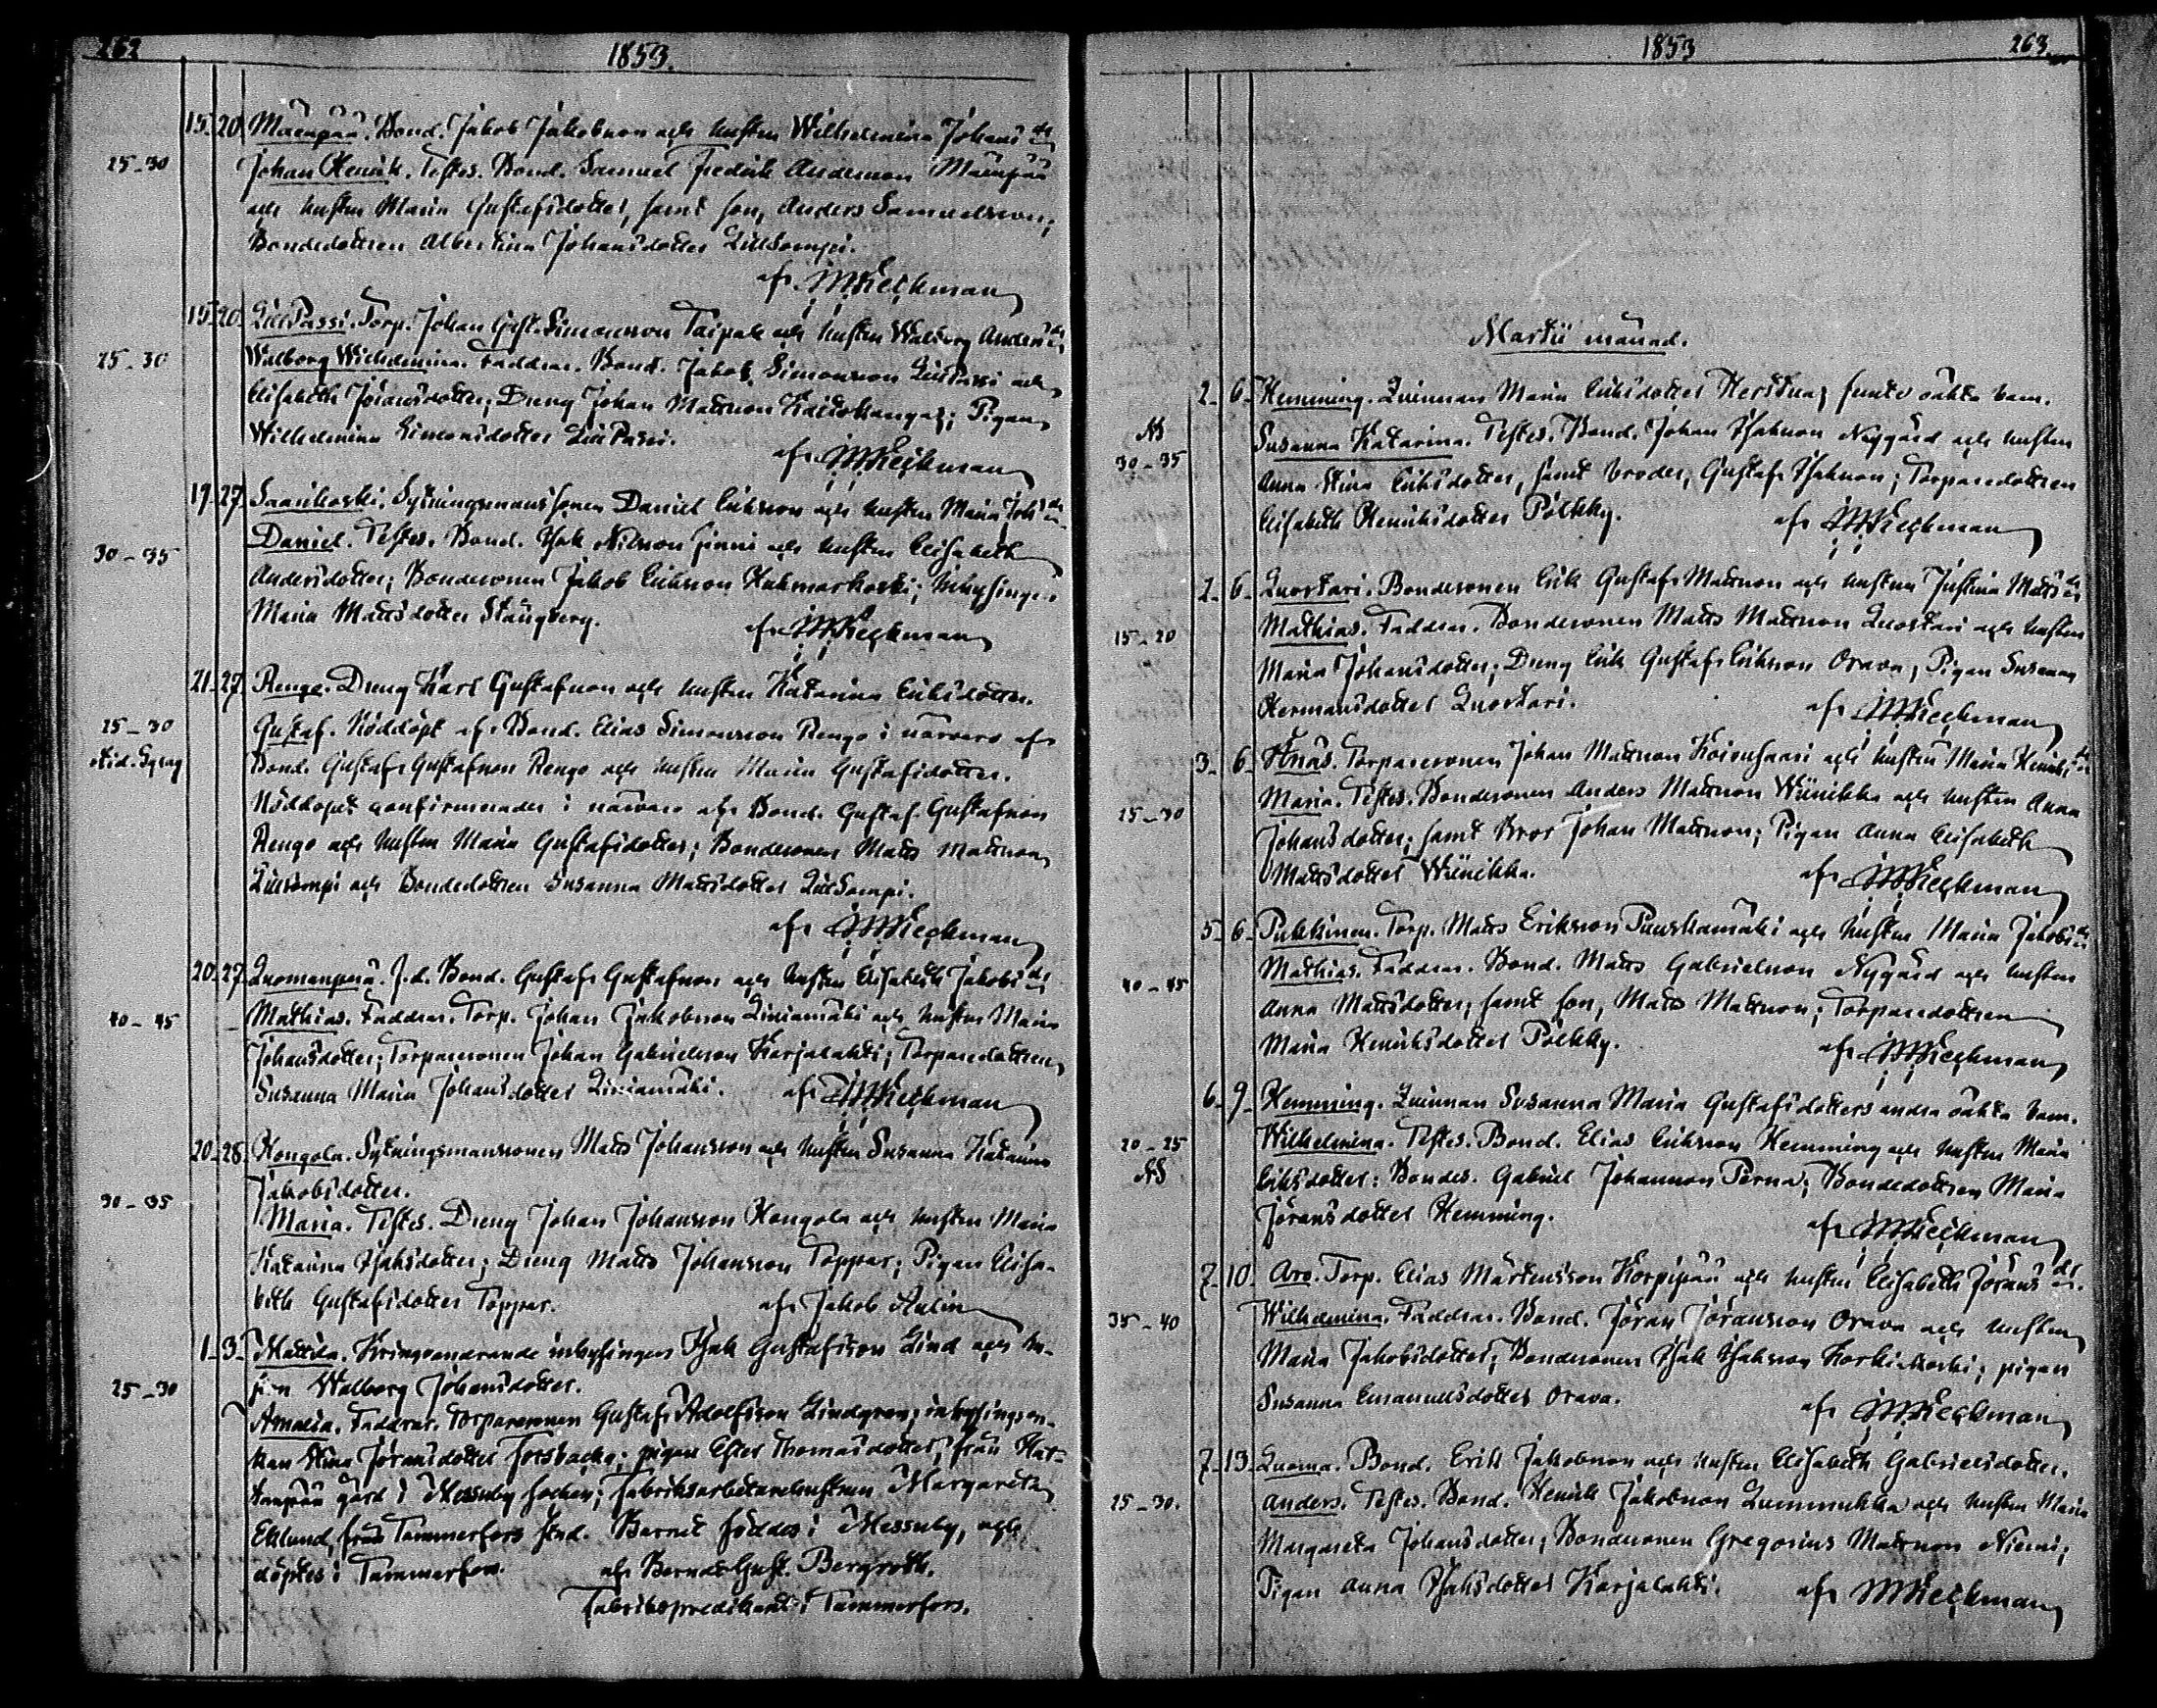 262
1853.
15. 20. Mäenpää. Bond. Jakob Jakobsson och hustru Wilhelmina Johansdr
25-30
Johan Henrik. Testes. Bond. Samuel Fredrik Andersson Mäenpää
och hustru Maria Gustafsdotter, samt son, Anders Samuelsson;
Bondedottren Albertina Johansdotter Lillsompi.
af
15. 20. LillPassi. Torp. Johan Gust. Simonsson Taipale och hustru Walborg Andersdr
25-30
Walborg Wilhelmina. Faddrar. Bond. Jakob Simonsson LillPassi och
Elisabeth Jöransdotter; Dreng Johan Mattsson Kaitokangas; Pigan
Wilhelmina Simonsdotter LillPassi.
af
19. 27. Saarikoski. Sytningsmanssonen Daniel Eriksson och hustru Maria Johsdr
Daniel. Testes. Bond. Isak Nilsson Finni och hustru Elisabeth
30-35
Andersdotter; Bondesonen Jakob Eriksson Hakmarkoski; Inhysinge
Maria Mattsdotter Stångberg.
af
21. 27. Rengo. Dreng Karl Gustafsson och hustru Katarina Eriksdotter.
25-30
Gustaf. Nöddöpt af Bond. Elias Simonsson Rengo i närvaro af
Bond. Gustaf Gustafsson Rengo och hustru Maria Gustafsdotter.
Nöddopet confirmerades i närvaro af Bond. Gustaf Gustafsson
Rengo och hustru Maria Gustafsdotter; Bondesonen Matts Mattsson
Lillsompi och Bondedottren Susanna Mattsdotter LillSompi.
af
20. 27. Luomanpää. F.d. Bond. Gustaf Gustafsson och hustru Elisabeth Jakobsdr
40-45
Mathias. Faddrar. Torp. Johan Jakobsson Liniamäki och hustru Maria
Johansdotter; Torparesonen Johan Gabrielsson Karjalahti; Torparedottren
Susanna Maria Johansdotter Liniamäki.
af
20. 28. Kongola. Sytningsmanssonen Matts Johansson och hustru Susanna Katarina
Jakobsdotter.
30-35
Maria. Testes. Dreng Johan Johansson Kongola och hustru Maria
Katarina Isaksdotter; Dreng Matts Johansson Toppar; Pigan Elisa-
beth Gustafsdotter Toppar.
af Jakob Aulin
1. 3. Mattila. Kringvandrande inhysingen Isak Gustafsson Lind och hu-
25-30
strun Walborg Johansdotter.
Amalia. Faddrar. Torparesonen Gustaf Adolfsson Lindgren; inhysingsen-
kan Stina Jöransdotter Forsbacka; pigan Ester Thomasdotter, från Hat-
anpää gård i Messuby socken; Fabriksarbetarehustrun Margareta
Eklund, från Tammerfors stad. Barnet föddes i Messuby, och
döptes i Tammerfors.
af Bernd Gust. Bergroth.
Fabrikspredikant i Tammerfors.
1853
263.
Martii månad.
2. 6. Hemming. Quinnan Maria Eriksdotter Herttuas femte oäkta barn.
30-35
Susanna Katarina. Testes. Bond. Johan Isaksson Nygård och hustru
Anna Stina Eriksdotter, samt broder, Gustaf Isaksson; Torparedottren
Elisabeth Henriksdotter Pölkky.
af
2. 6. Luostari. Bondesonen Erik Gustaf Mattsson och hustru Justina Mattsdr
15-20
Mathias. Faddrar. Bondesonen Matts Mattsson Luostari och hustru
Maria Johansdotter; Dreng Erik Gustaf Eriksson Orava, Pigan Susanna
Hermansdotter Luostari.
af
3. 6. Knås. Torparesonen Johan Mattsson Koivusaari och hustru Maria Henriksdr
25-30
Maria. Testes. Bondesonen Anders Mattsson Wiinikka och hustru Anna
Johansdotter; samt Bror Johan Mattsson; Pigan Anna Elisabeth
Mattsdotter Wiinikka.
af
5. 6. Pukkinen. Torp. Matts Eriksson Puuskamäki och hustru Maria Jakobsdr
40-45
Mathias. Faddrar. Bond. Matts Gabrielsson Nygård och hustru
Anna Mattsdotter, samt son, Matts Mattsson; Torparedottren
Maria Henriksdotter Pölkky.
af
6. 9. Hemming. Quinnan Susanna Maria Gustafsdotters andra oäkta barn.
20-25
Wilhelmina. Testes. Bond. Elias Eriksson Hemming och hustru Maria
Eriksdotter; Bondes. Gabriel Johansson Perna; Bondedottren Maria
Jöransdotter Hemming.
af
7. 10. Aro. Torp. Elias Mårtensson Korpipää och hustru Elisabeth Jöransdr.
35-40
Wilhelmina. Faddrar. Bond. Jöran Jöransson Orava och hustru
Maria Jakobsdotter; Bondesonen Isak Isaksson Koskikoski; pigan
Susanna Emanuelsdotter Orava.
af
7. 13. Luoma. Bond. Erik Jakobsson och hustru Elisabeth Gabrielsdotter.
25-30.
Anders. Testes. Bond. Henrik Jakobsson Lummukka och hustru Maria
Margareta Johansdotter; Bondesonen Gregorius Mattsson Niemi;
Pigan Anna Isaksdotter Karjalahti.
af